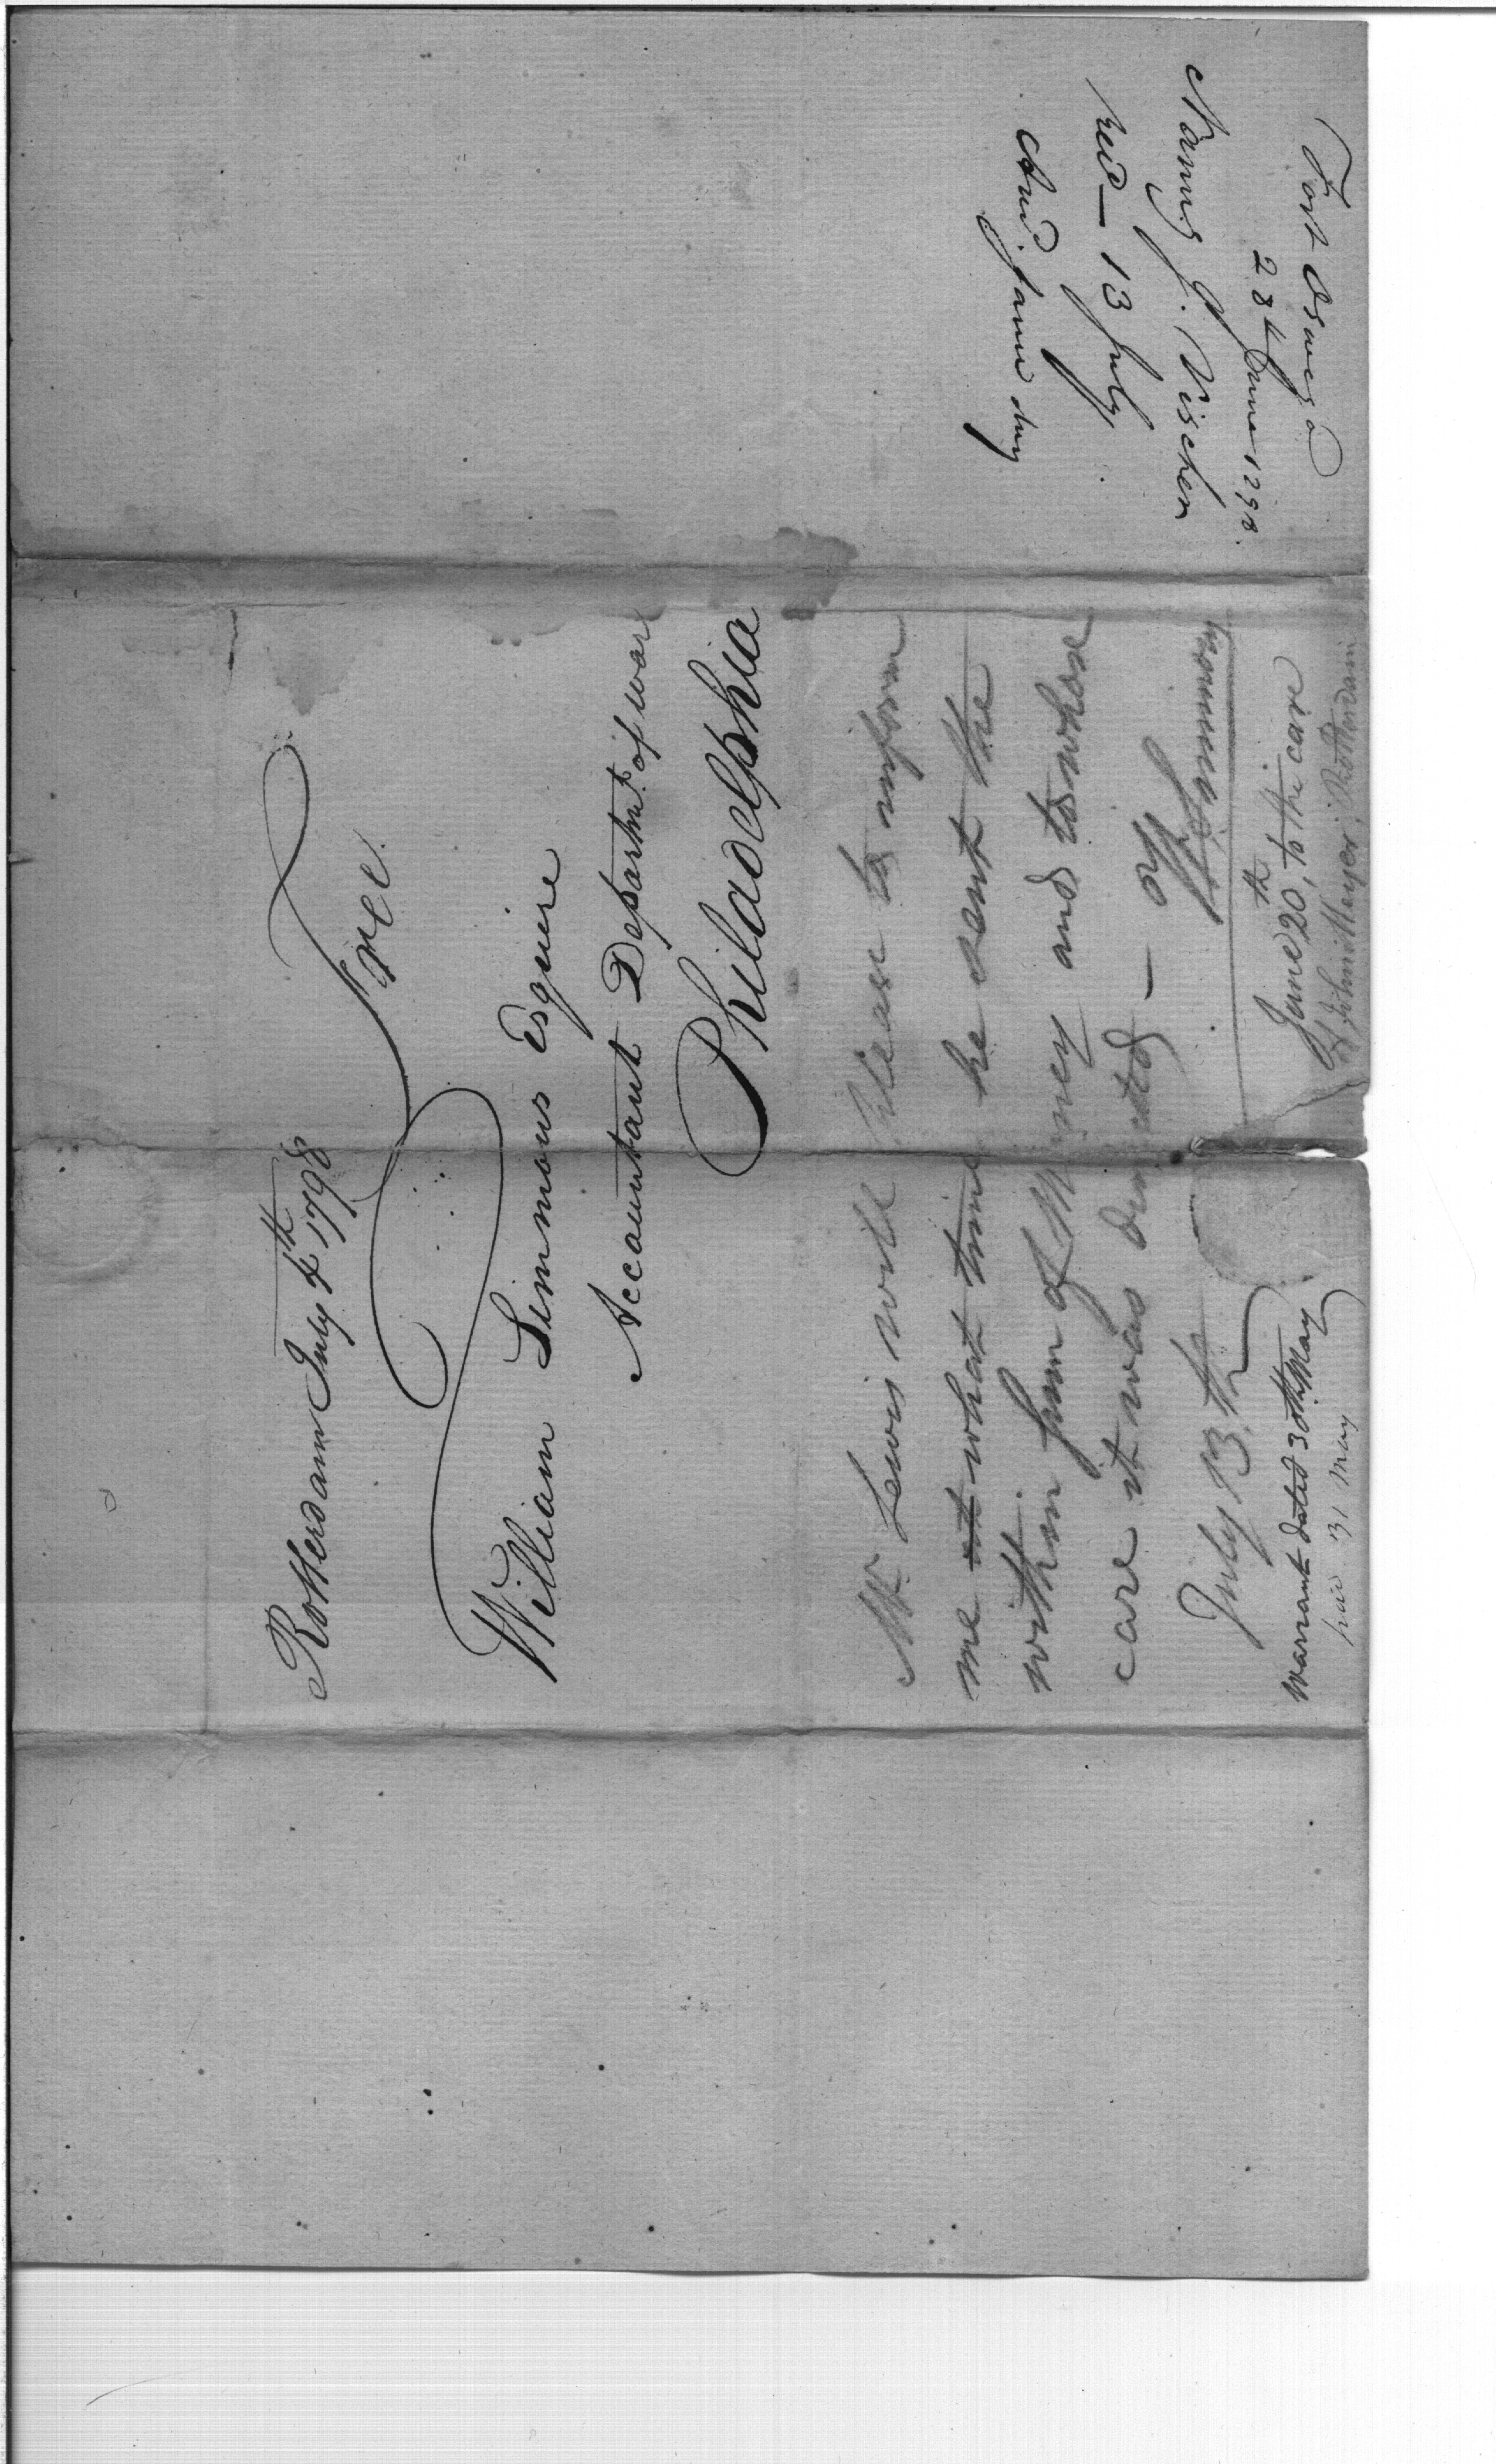 Rotterdam July 4th 1798
Free
William Simmons Esquire
Accountant Departmt. of war
Philadelphia
Mr Lewis will please to inform
me at what time he sent the
within sum of Money and to whose
care it was directed —
July 13th W Simmons
June 20th, to the care
of John Meyer, Rotterdam
Warrant dated 30th May
paid 31 May
Fort Oswego
28th June 1798.
Nanning J. Visscher
recd — 13 July
Ansd. same day